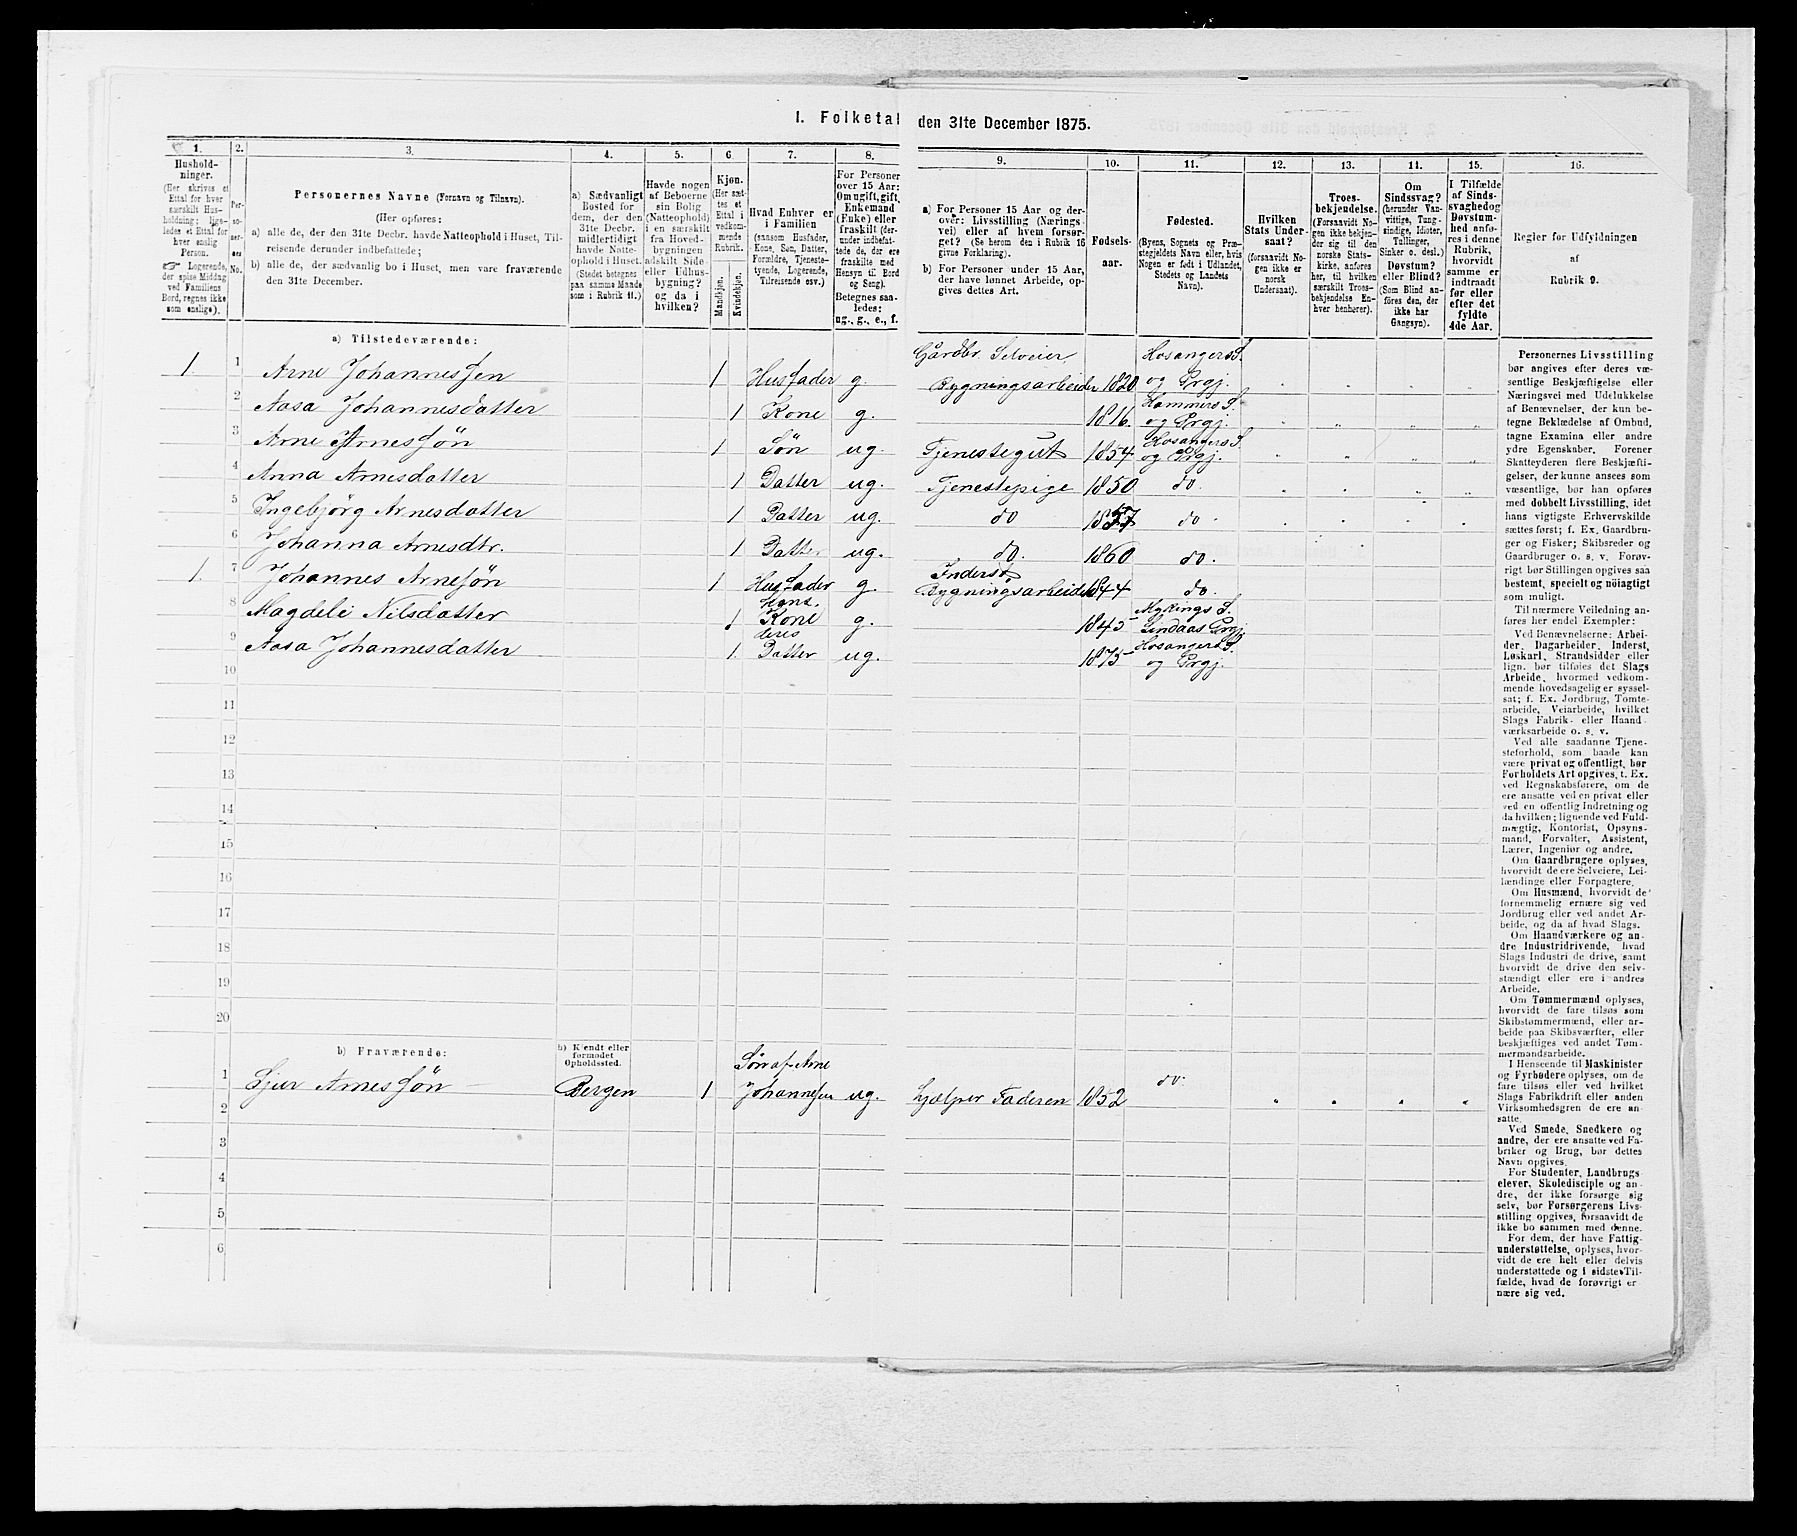 1. Folketal den 31te December 1875.
1.
Hushold-
ninger.
(Her skrives et
Ettal for hver
særskilt Hus-
holdning; lige-
ledes et Ettal for
hver enslig
Person.
☞ Logerende,
der spise Middag
ved Familiens
Bord, regnes ikke
som enslige).
2.
Per-
so-
ner-
nes
No.
3.
Personernes Navne (Fornavn og Tilnavn).
(Her opføres:
a) alle de, der den 31te Decbr. havde Natteophold i Huset, Til-
reisende derunder indbefattede;
b) alle de, der sædvanlig bo i Huset, men vare fraværende
den 31te December.
4.
a) Sædvanligt
Bosted for
dem, der den
31te Decbr.
midlertidigt
havde Natte-
ophold i Huset.
(Stedet betegnes
paa samme Maade
som i Rubrik 11.)
5.
Havde nogen
af Beboerne
sin Bolig
(Natteophold)
i en særskilt
fra Hoved-
bygningen
adskilt Side-
eller Udhus-
bygning?
og da i
hvilken?
6.
Kjøn.
(Her sæt-
tes et
Ettal i
vedkom-
mende
Rubrik.
Mandkjøn.
Kvindekjøn.
7.
Hvad Enhver er
i Familien
(saasom Husfader,
Kone, Søn, Datter,
Forældre, Tjeneste-
tyende, Logerende,
Tilreisende osv.)
8.
For Personer
over 15 Aar:
Om ugift, gift,
Enkemand
(Enke) eller
fraskilt (der-
under indbefat-
tede de, der ere
fraskilte med
Hensyn til Bord
og Seng).
Betegnes saa-
ledes:
ug., g., e., f.
9.
a) For Personer 15 Aar og der-
over: Livsstilling (Nærings-
vei) eller af hvem forsør-
get? (Se herom den i Rubrik 16
givne Forklaring).
b) For Personer under 15 Aar,
der have lønnet Arbeide, op-
gives dettes Art.
10.
Fødsels-
aar.
11.
Fødested.
(Byens, Sognets og Præ-
stegjeldets Navn eller, hvis
Nogen er født i Udlandet,
Stedets og Landets
Navn).
12.
Hvilken
Stats Under-
saat?
(forsaavidt No-
gen ikke er
norsk
Undersaat).
13.
Troes-
bekjendelse.
(Forsaavidt No-
gen ikke bekjen-
der sig til den
norske Stats-
kirke, anføres
her, til hvilken
særskilt Troes-
bekjendelse En-
hver henhører).
11.
Om
Sindssvag?
(herunder Van-
vittige, Idioter,
Tullinger,
Sinker o. desl.)
Døvstum?
eller Blind?
(Som Blind an-
føres den, der
ikke har
Gangsyn).
15.
I Tilfælde
af Sinds-
svaghed og
Døvstum-
hed anfø-
res i denne
Rubrik,
hvorvidt
samme er
indtraadt
før eller
efter det
fyldte
4de Aar.
16.
Regler for Udfyldningen
af
Rubrik 9.
a) Tilstedeværende:
1 1 Arne Johannessen 1 Husfader g. Gårdbr. Selveier Bygningsarbeider 1820 Hosangers S. og Prgj.
2 Aasa Johannesdatter 1 Kone g. 1816. Hammers S. og Prgj.
3 Arne Arnessøn 1 Søn ug. Tjenestegut 1854 Hosangers S. og Prgj.
4 Anna Arnesdatter 1 Datter ug. Tjenestepige 1850 do.
5 Ingebjörg Arnesdatter 1 Datter ug. do 1857 do.
6 Johanna Arnesdtr. 1 Datter ug. do. 1860 do.
1. 7 Johannes Arnesøn 1 Husfader g. Inderst Bygningsarbeider 1844 do.
8 Magdeli Nilsdatter 1 Hans Kone g. 1845 Mykings S. Lindaas Prgj.
9 Aasa Johannesdatter 1. deres Datter ug. 1875 Hosangers S. og Prgj.
10
11
12
13
14
15
16
17
18
19
20
b) Fraværende:
b) Kjendt eller
formodet
Opholdssted.
1 Sjur Arnessøn Bergen 1 Søn af Arne Johannesen ug. hjælper Faderen 1852 do.
2
3
4
5
6
Personernes Livsstilling
bør angives efter deres væ-
sentlige Beskjæftigelse eller
Næringsvei med Udelukkelse
af Benævnelser, der kun be-
tegne Beklædelse af Ombud,
tagne Examina eller andre
ydre Egenskaber. Forener
Skatteyderen flere Beskjæfti-
gelser, der kunne ansees som
væsentlige, bør han opføres
med dobbelt Livsstilling, idet
hans vigtigste Erhvervskilde
sættes først; f. Ex. Gaardbru-
ger og Fisker; Skibsreder og
Gaardbruger o. s. v. Forøv-
rigt bør Stillingen opgives saa
bestemt, specielt og nöiagtigt
som muligt.
Til nærmere Veiledning an-
føres her endel Exempler:
Ved Benævnelserne: Arbei-
der, Dagarbeider, Inderst,
Løskarl, Strandsidder eller
lign. bør tilføies det Slags
Arbeide, hvormed vedkom-
mende hovedsagelig er syssel-
sat; f. Ex. Jordbrug, Tomte-
arbeide, Veiarbeide, hvilket
Slags Fabrik- eller Haand-
værksarbeide o. s. v.
Ved alle saadanne Tjene-
steforhold, som baade kan
være privat og offentligt, bør
Forholdets Art opgives, t. Ex.
ved Regnskabsførere, om de
ere ansatte ved en privat eller
ved en offentlig Indretning og
da hvilken; lignende ved Fuld-
mægtig, Kontorist, Opsyns-
mand, Forvalter, Assistent,
Lærer, Ingeniør og andre.
Om Gaardbrugere oplyses,
hvorvidt de ere Selveiere, Lei-
lændinge eller Forpagtere.
Om Husmænd, hvorvidt de
fornemmelig ernære sig ved
Jordbrug eller ved andet Ar-
beide, og da af hvad Slags.
Om Haandværkere og an-
dre Industridrivende, hvad
Slags Industri de drive, samt
hvorvidt de drive den selv-
stændigt eller ere i andres
Arbeide.
Om Tømmermænd oplyses,
hvorvidt de fare tilsøs som
Skibstømmermænd, eller ar-
beide paa Skibsværfter, eller
beskjæftiges ved andet Tøm-
mermandsarbeide.
I Henseende til Maskinister
og Fyrbødere oplyses, om de
fare tilsøs eller ved hvilket
Slags Fabrikdrift eller anden
Virksomhedsgren de ere an-
satte.
Ved Smede, Snedkere og
andre, der ere ansatte ved Fa-
briker og Brug, bør dettes
Navn opgives.
For Studenter, Landbrugs-
elever, Skoledisciple og an-
dre, der ikke forsørge sig
selv, bør Forsørgerens Livs-
stilling opgives, forsaavidt de
ikke bo sammen med denne.
For dem, der have Fattig-
understøttelse, oplyses, hvor-
vidt de ere helt eller delvis
understøttede og i sidste Til-
fælde, hvad de forøvrigt er-
nære sig ved.